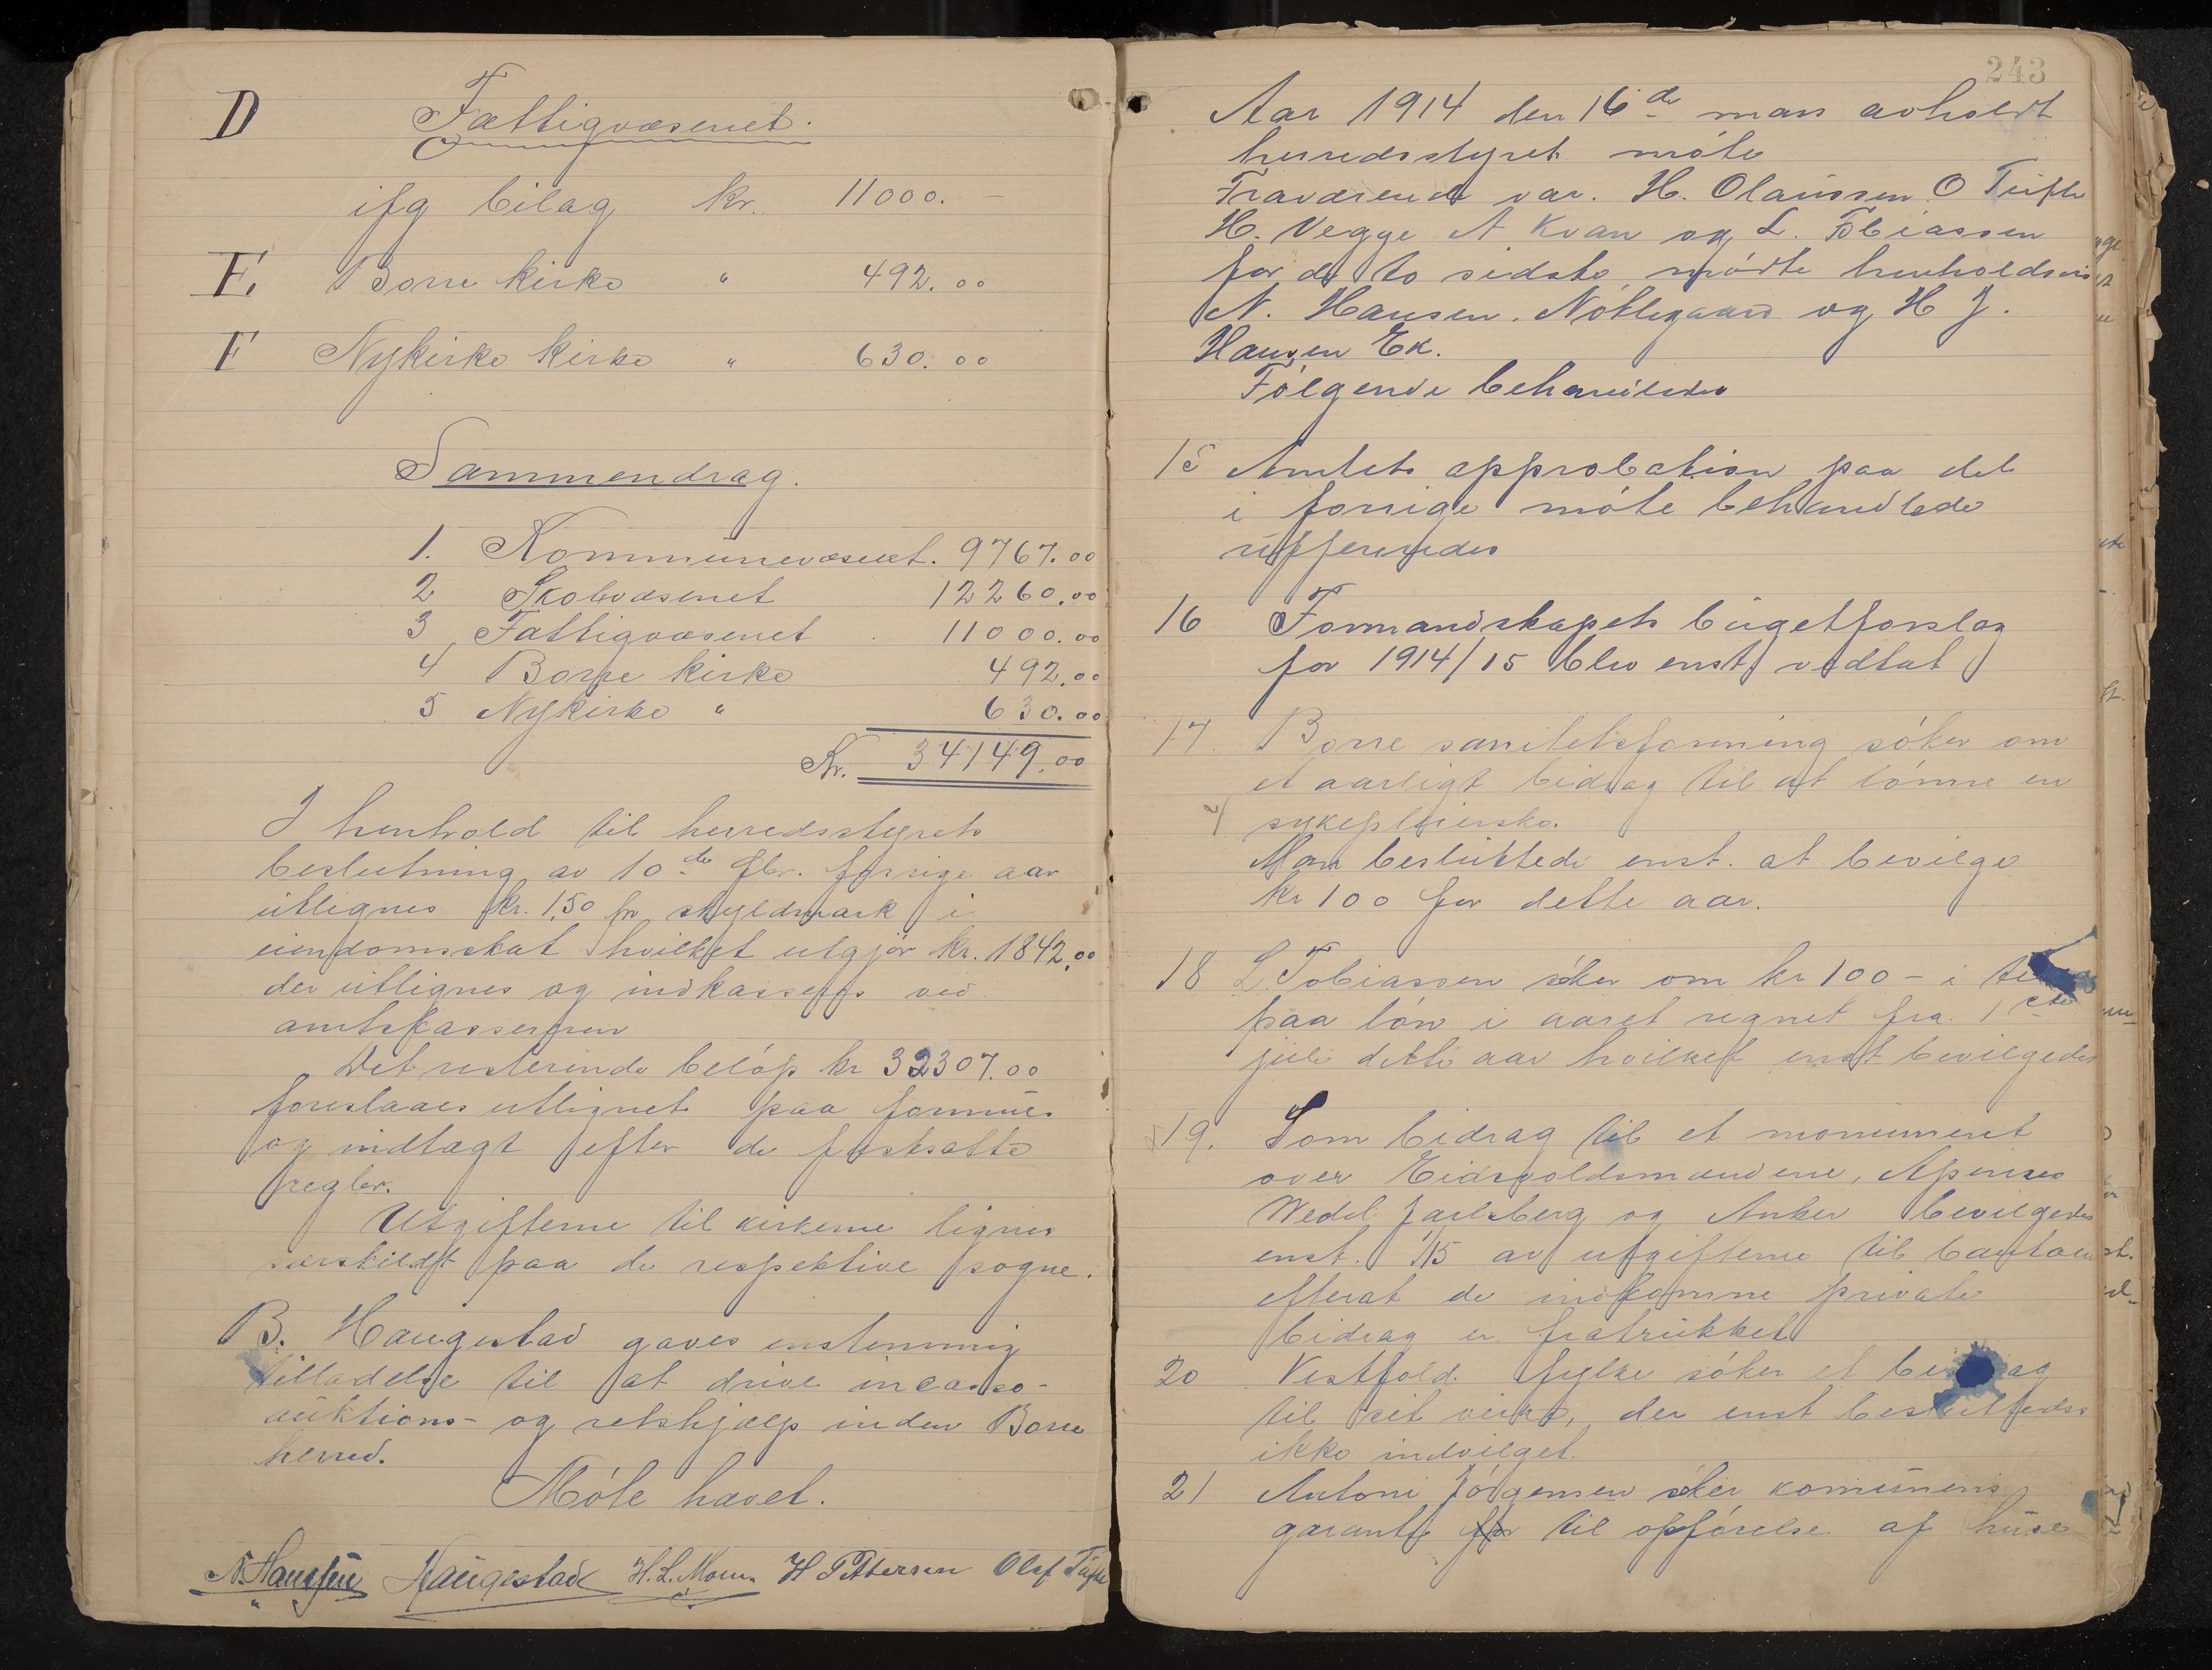 D Fattigvæsenet.
ifg bilag kr. 11000. –
E. Borre kirke " 492.00
F Nykirke kirke " 630.00
Sammendrag.
1. Kommunevæsenet. 9767.00
2 Skolevæsenet 12260.00
3 Fattigvæsenet . 11000.00
4 Borre kirke 492.00
5 Nykirke " 630.00
Kr. 34149.00
I henhold til herredsstyrets
beslutning av 10de forrige aar
utlignes kr. 1,50 pr skyldmark i
eiendomsskat hvilket utgjör kr. 1842.00
der utlignes og indkasseres ved
amtskassereren
Det resterende belöp kr 32307.00
foreslaaes utlignet paa formue
og indtægt efter de fastsatte
regler.
Utgifterne til kirkerne lignes
særskildt paa de respektive sogne.
B. Haugestad gaves enstemmig
tilladelse til at drive incasso-
auktions- og retshjælp inden Borre
herred.
Möte hævet.
N. Hansen Haugestad H. L. Moum H Pettersen Olaf Tufte
243
Aar 1914 den 16de mars avholdt
herredsstyret möte
Fraværende var. H. Olaussen O Tufte
H. Vegge A Kvan og L. Tobiassen
for de to sidste mödte henholdsvis
N. Hansen. Nöklegaard og H J.
Hansen Ek.
Fölgende behandledes
15 Amtets approbation paa det
i forrige möte behandlede
refferertes
16 Formandskapets bugetforslag
for 1914/15 blev enst. vedtat
17. Borre sanitetsforening söker om
et aarligt bidrag til at lönne en
sykepleierske.
Man besluttede enst. at bevilge
kr 100 for dette aar.
18 L. Tobiassen söker om kr 100 – i
paa lön i aaret regnet fra 1ste
juli dette aar hvilket enst bevilgedes
19. Som bidrag til et monument
over Eidsvoldsmændene,
Wedel Jarlsberg og Anker bevilgedes
enst. 1/15 av utgifterne til bautaen
efterat de indkomne private
bidrag er fratrukket
20 Vestfold fylke söker et bidrag
til sit virke, der enst besluttedes
ikke indvilget.
21 Antoni Jörgensen söker komunens
garanti for til opförelse af huse